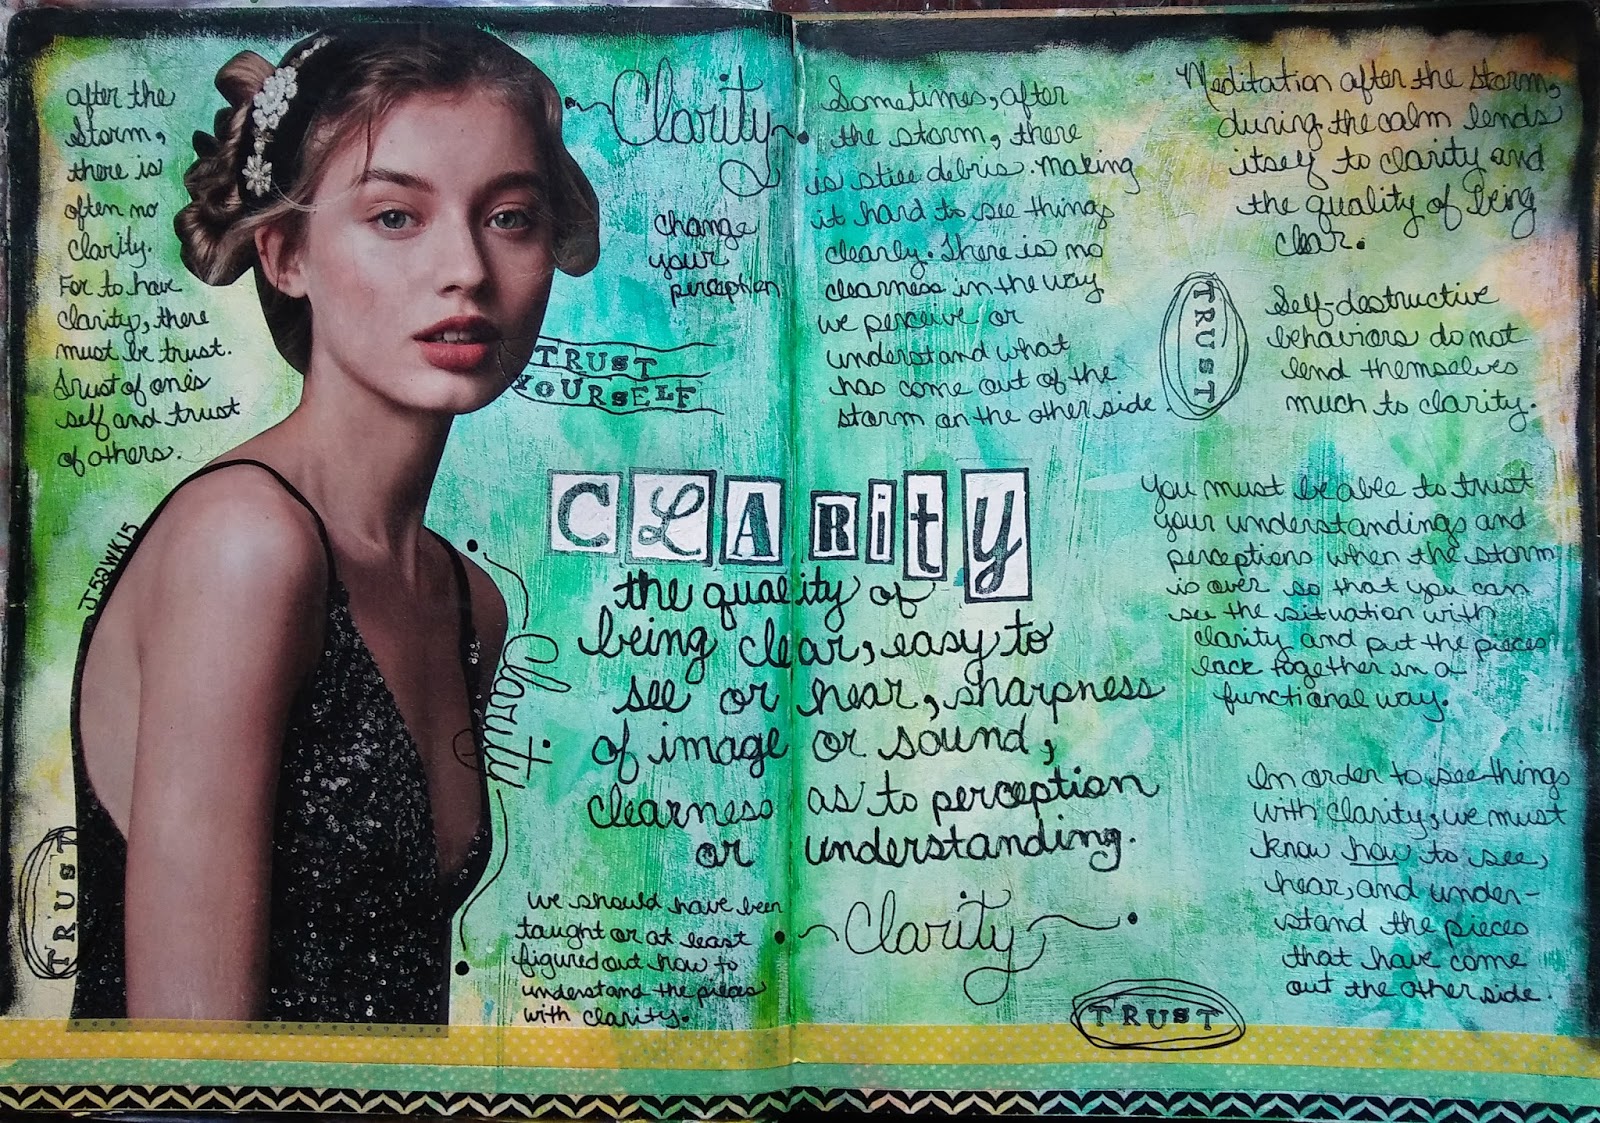 after the
storm,
there is
often no
clarity.
For to have
clarity, there
must be trust.
Trust of one's
self and trust
of others.
JJ52WK15
TRUST
Clarity
change
your
perception
TRUST
YOURSELF
CLARity
the quality of
being clear, easy to
see or hear, sharpness
of image or sound,
clearness as to perception
or understanding.
Clarity
we should have been
taught or at least
figured out how to
understand the pieces
with clarity.
Clarity
Sometimes, after
the storm, there
is still debris. Making
it hard to see things
clearly. There is no
clearness in the way
we perceive or
understand what
has come out of the
storm on the other side.
Meditation after the storm,
during the calm lends
itself to clarity and
the quality of being
clear.
TRUST
Self-destructive
behaviors do not
lend themselves
much to clarity.
You must be able to trust
your understandings and
perceptions when the storm
is over so that you can
see the situation with
clarity and put the pieces
back together in a
functional way.
In order to see things
with clarity, we must
know how to see,
hear, and under-
stand the pieces
that have come
out the other side.
TRUST